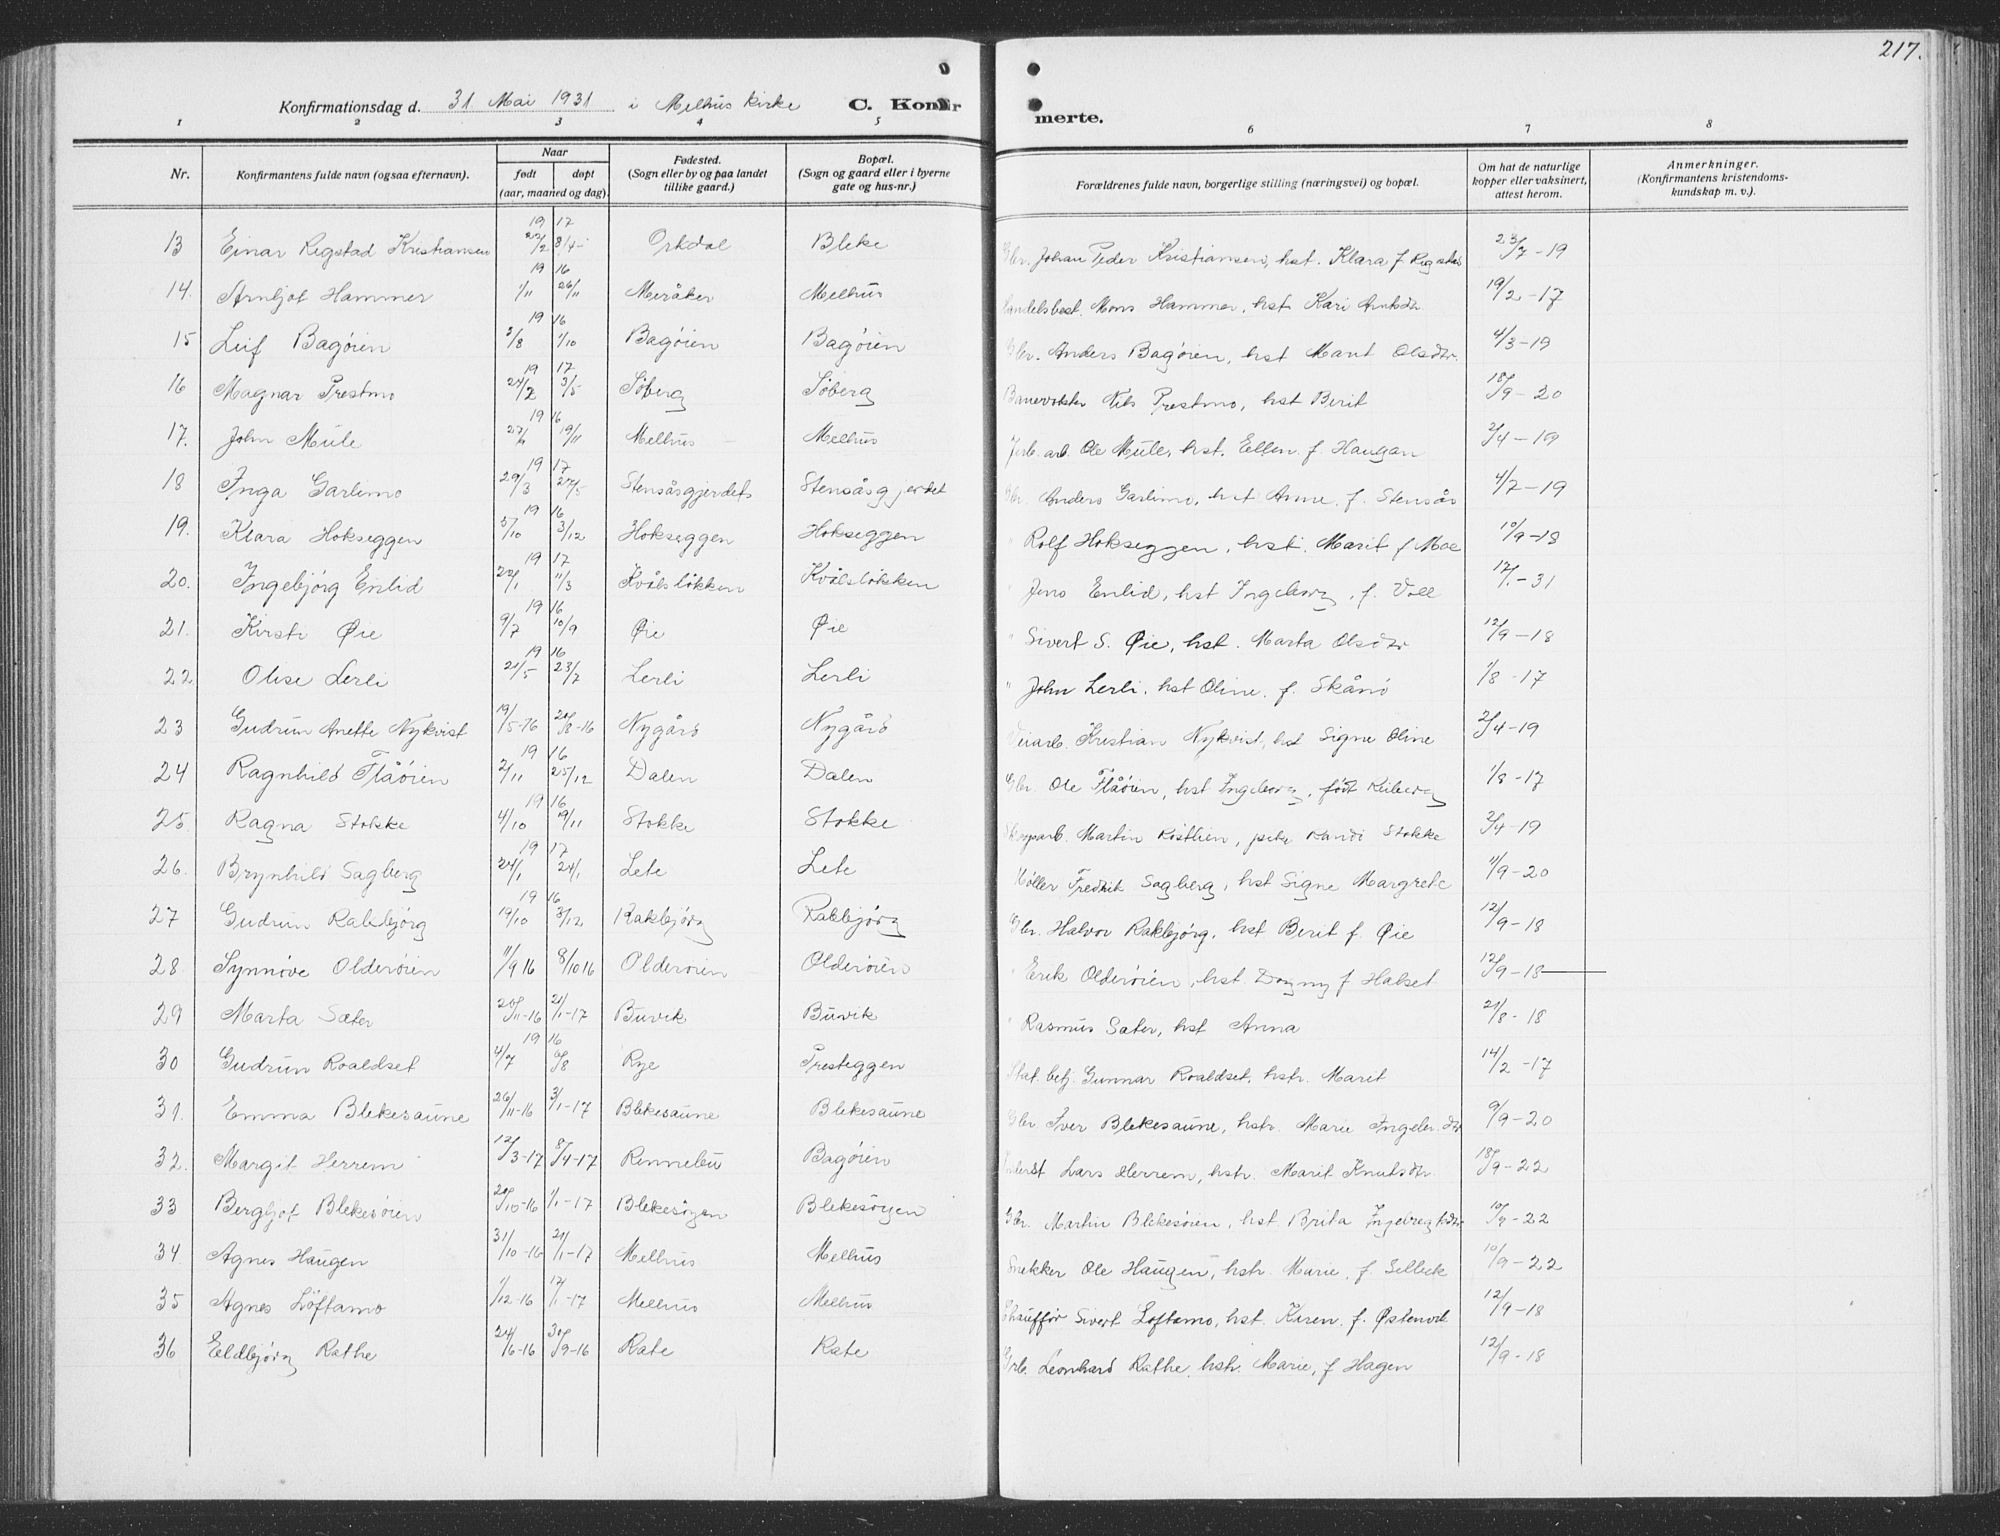 217.
Konfirmationsdag d. 31 Mai 1931 i Melhus kirke C. Konfir
merte.
1 2 3 4 5 6 7 8
Nr. Konfirmantens fulde navn (ogsaa efternavn). Naar født døpt (aar, maaned og dag). Fødested. (Sogn eller by og paa landet tillike gaard.) Bopæl. (Sogn og gaard eller i byerne gate og hus-nr.) Forældrenes fulde navn, borgerlige stilling (næringsvei) og bopæl. Om hat de naturlige kopper eller vaksinert, attest herom. Anmerkninger. (Konfirmantens kristendoms-kundskap m. v.).
19 17
13 Einar Rigstad Kristiansen 22/2 8/4 Orkdal Bleke Gbr. Johan Peder Kristiansen, hst. Klara f Rigstad 23/7-19
19 16
14. Arnljot Hammer 1/11 26/11 Meråker Melhus Handelsbest. Mons Hammer, hst. Kari 19/2-17
19 16
15 Leif Bagøien 2/8 1/10 Bagøien Bagøien Gbr. Anders Bagøien, hst Marit Olsdtr. 4/3-19
19 17
16 Magnar Prestmo 24/2 3/5 Søberg Søberg Banevokter Nils Prestmo, hst Berit 18/9-20
19 16
17. John Mule 19/11 Melhus Melhus Jerb. arb. Ole Mule, hst. Ellen f. Haugan 2/4-19
19 17
18 Inga Garlimo 29/3 27/5 Stensåsgjerdets Stensåsgjerdet Gbr. Anders Garlimo, hst Anne f. Stensås 4/7-19
19 16
19. Klara Hokseggen 5/10 3/12 Hokseggen Hokseggen " Rolf Hokseggen, hst. Marit f Moe 10/9-18
19 17
20. Ingebjørg Enlid 20/1 11/3 Kvålsløkken Kvålsløkken " Jens Enlid, hst Ingeborg, f. Voll 12/1-31
19 16
21. Kirsti Øie 9/7 10/9 Øie Øie " Sivert S. Øie, hst. Marta Olsdtr 12/9-18
19 16
22. Olise Lerli 21/5 23/7 Lerli Lerli " John Lerli, hst Oline f. Skånø 1/8-17
23 Gudrun Anette Nykvist 19/5-16 20/8-16 Nygård Nygård Veiarb. Kristian Nykvist, hst Signe Oline 2/4-19
19 16
24 Ragnhild Flåøien 2/11 25/12 Dalen Dalen Gbr. Ole Flåøien, hst Ingeborg, født Kuberg 1/8-17
19 16
25 Ragna Stokke 4/10 19/11 Stokke Stokke Skogarb. Martin Røstlien, Randi Stokke 2/4-19
19 17
26. Brynhild Sagberg 24/1 24/1 Lete Lete Møller Fredrik Sagberg, hst Signe Margrete 11/9-20
19 16
27 Gudrun Rakbjørg 19/10 3/12 Rakbjørg Rakbjørg Gbr. Halvor Rakbjørg, hst Berit f. Øie 12/9-18
28. Synnøve Olderøien 11/9 16 8/10 16 Olderøien Olderøien " Erik Olderøien, hst. Dagny f Halset 12/9-18
29 Marta Sæter 20/11-16 21/1-17 Buvik Buvik " Rasmus Sæter, hst Anna 21/8-18
19 16
30 Gudrun Roaldset 4/7 6/8 Rye Presteggen Stat. betj. Gunnar Roaldset, hstr. Marit 14/2-17
31. Emma Blekesaune 26/11-16 3/1-17 Blekesaune Blekesaune Gbr. Iver Blekesaune, hstr. Marie Ingebr. dtr 9/9-20
32. Margit Herrem 12/3-17 8/4-17 Rennebu Bagøien Lars Herrem, hstr. Marit Knutsdtr. 18/9-22
33 Bergljot Blekesøien 20/10-16 1/1-17 Blekesøyen Blekesøyen Gbr. Martin Blekesøien, hst. Brita Ingebregtsdtr 10/9-22
34 Agnes Haugen 31/10-16 21/1-17 Melhus Melhus Snekker Ole Haugen, hstr. Marie, f. Selbek 10/9-22
35 Agnes Løftamo 1/12-16 17/1-17 Melhus Melhus Chauffør Sivert Løftamo, hst. Karen f. Østenvik 12/9-18
36 Eldbjørg Rathe 24/6-16 30/9-16 Rate Rate Grb. Leonhard Rathe, hstr. Marie, f Hagen 12/9-18